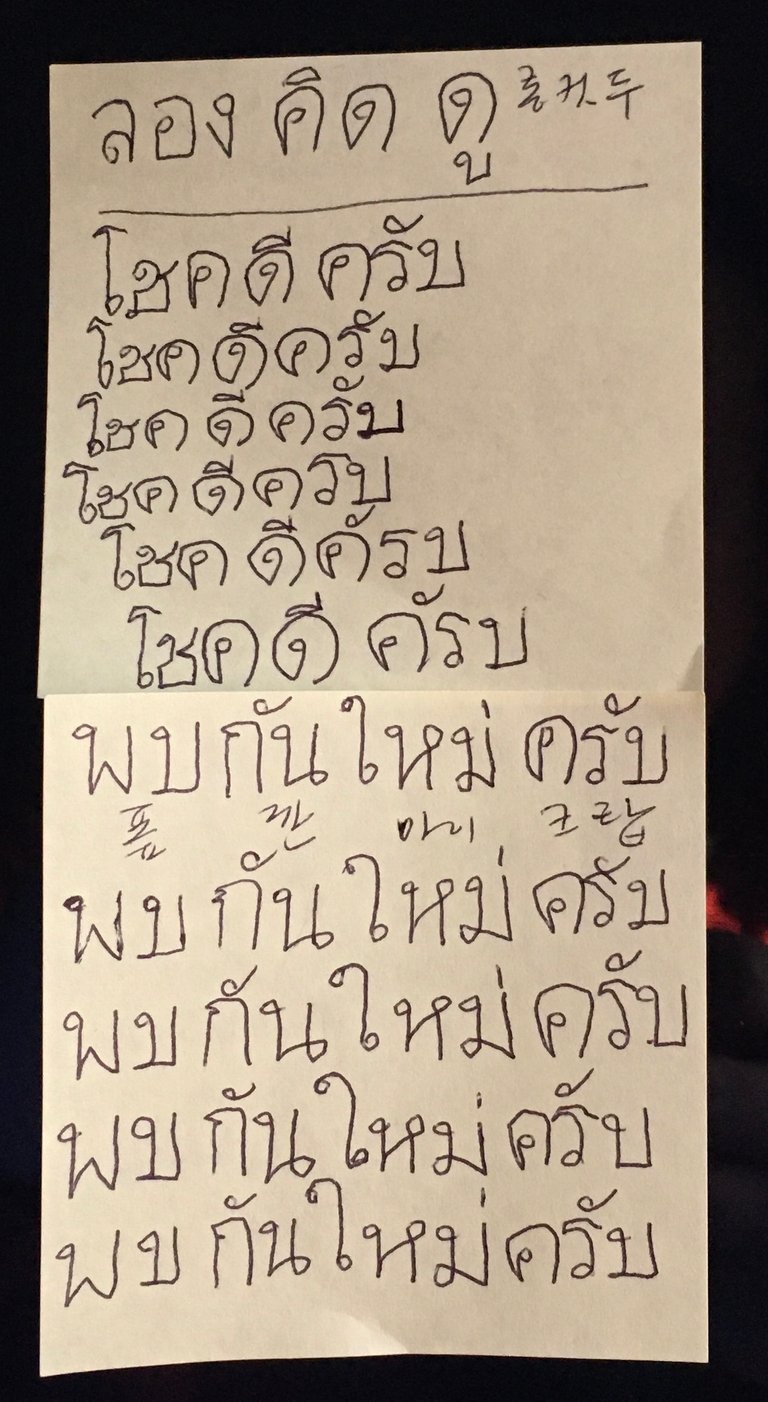 ลอง คิด ดู
โชคดี ครับ
โชคดีครับ
โชค ดี ครับ
โชค ดี ครบ
โชค ดี คัรบ
โชคดี คัรบ
พบกันใหม่ ครับ
깐 마이 크랍
พบ กันใหม่ ครับ
พบ กันใหม่ ครับ
พบ กันใหม่ ครับ
พบ กันใหม่ ครับ